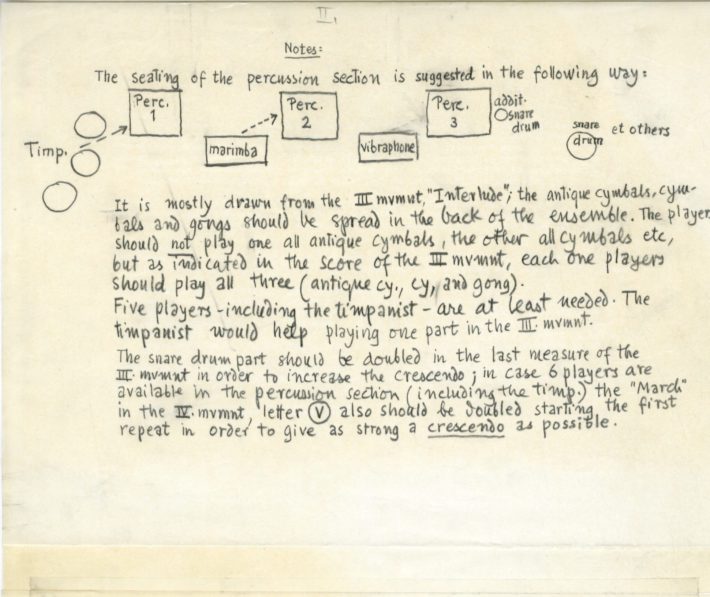 II.
Notes:
The seating of the percussion section is suggested in the following way:
Perc. 1
Perc. 2
Perc. 3
addit. snare drum
snare drum
et others
Timp.
marimba
vibraphone
It is mostly drawn from the III mvmnt, "Interlude"; the antique cymbals, cym-
bals and gongs should be spread in the back of the ensemble. The player
should not play one all antique cymbals, the other all cymbals etc,
but as indicated in the score of the III mvmnt, each one players
should play all three (antique cy., cy, and gong).
Five players - including the timpanist - are at least needed. The
timpanist would help playing one part in the III. mvmnt.
The snare drum part should be doubled in the last measure of the
III. mvmnt in order to increase the crescendo; in case 6 players are
available in the percussion section (including the timp.) the "March"
in the IV. mvmnt, letter V also should be doubled starting the first
repeat in order to give as strong a crescendo as possible.